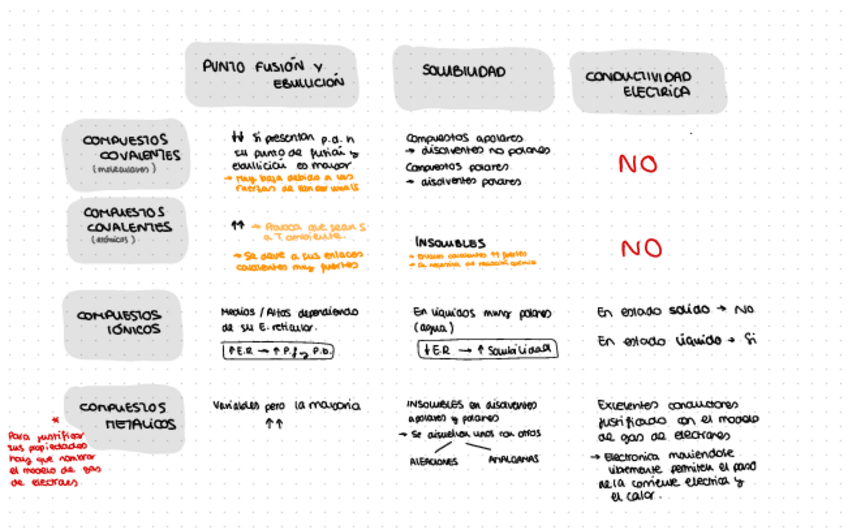 PUNTO FUSIÓN Y
EBULLICIÓN
SOLUBILIDAD
CONDUCTIVIDAD
ELECTRICA
COMPUESTOS
COVALENTES
(moleculares)
↓↓ Si presentan p.d.h
su punto de fusión y
ebullición es mayor
→ Muy baja debido a las
fuerzas de van der waals
Compuestos apolares
→ disolventes no polares
Compuestos polares
→ disolventes polares.
NO
COMPUESTOS
COVALENTES
(atómicos)
↑↑ → Provoca que sean S
a T ambiente.
→ Se debe a sus enlaces
covalentes muy fuertes
INSOLUBLES
→ Enlaces covalentes ↑↑ fuertes
→ Se necesita una reacción química
NO
COMPUESTOS
IÓNICOS
Medios / Altos dependiendo
de su E. reticular.
↑E.R → ↑ P.f y P.b.
En líquidos muy polares
(agua)
↓E.R → ↑ Solubilidad
En estado sólido → No
En estado líquido → Si
COMPUESTOS
METALICOS
Variables pero la mayoria
↑↑
INSOLUBLES en disolventes
apolares y polares
→ Se disuelven unos con otros
ALEACIONES AMALGAMAS
Excelentes conductores
justificado con el modelo
de gas de electrones
→ Electronica moviendose
libremente permiten el paso
de la corriente electrica y
el calor.
*
Para justificar
sus propiedades
hay que nombrar
el modelo de gas
de electrones.